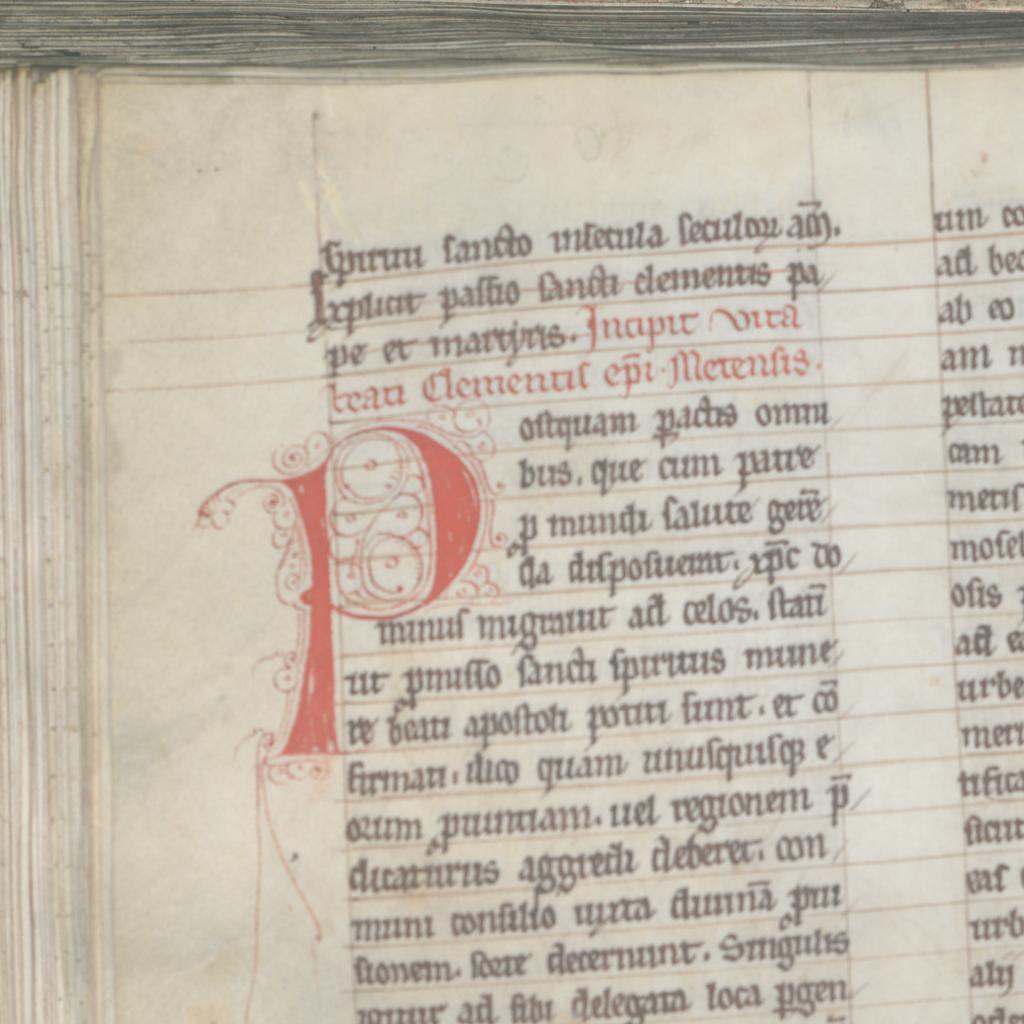 spiritu sancto insecula seculoꝝ am̄.
Explicit passio sancti clementis pa
pe et martyris. Incipit vita
beati Clementis ep̄i Metensis.
Postquam ꝑactis omni
bus. que cum patre
ꝓ mundi salute gerē
da disposuerat. xp̄c do
minus migrauit ad celos. stati̅
ut ꝓmisso sancti spiritus mune
re beati apostoli potiti sunt. et co̅
firmati. ilico quam unusquisqꝫ e
orum ꝓuintiam. uel regionem p̄
dicaturus aggredi deberet. con
muni consilio iuxta diuina̅ ꝓui
sionem. sorte decernunt. Singulis
igitur ad sibi delegata loca ꝑgen
um co
ad bea
ab eo
am
pestate
cam
metis
mosel
osis
ad ea
urbe
meru
tifica
sicut
eas
urb
alij